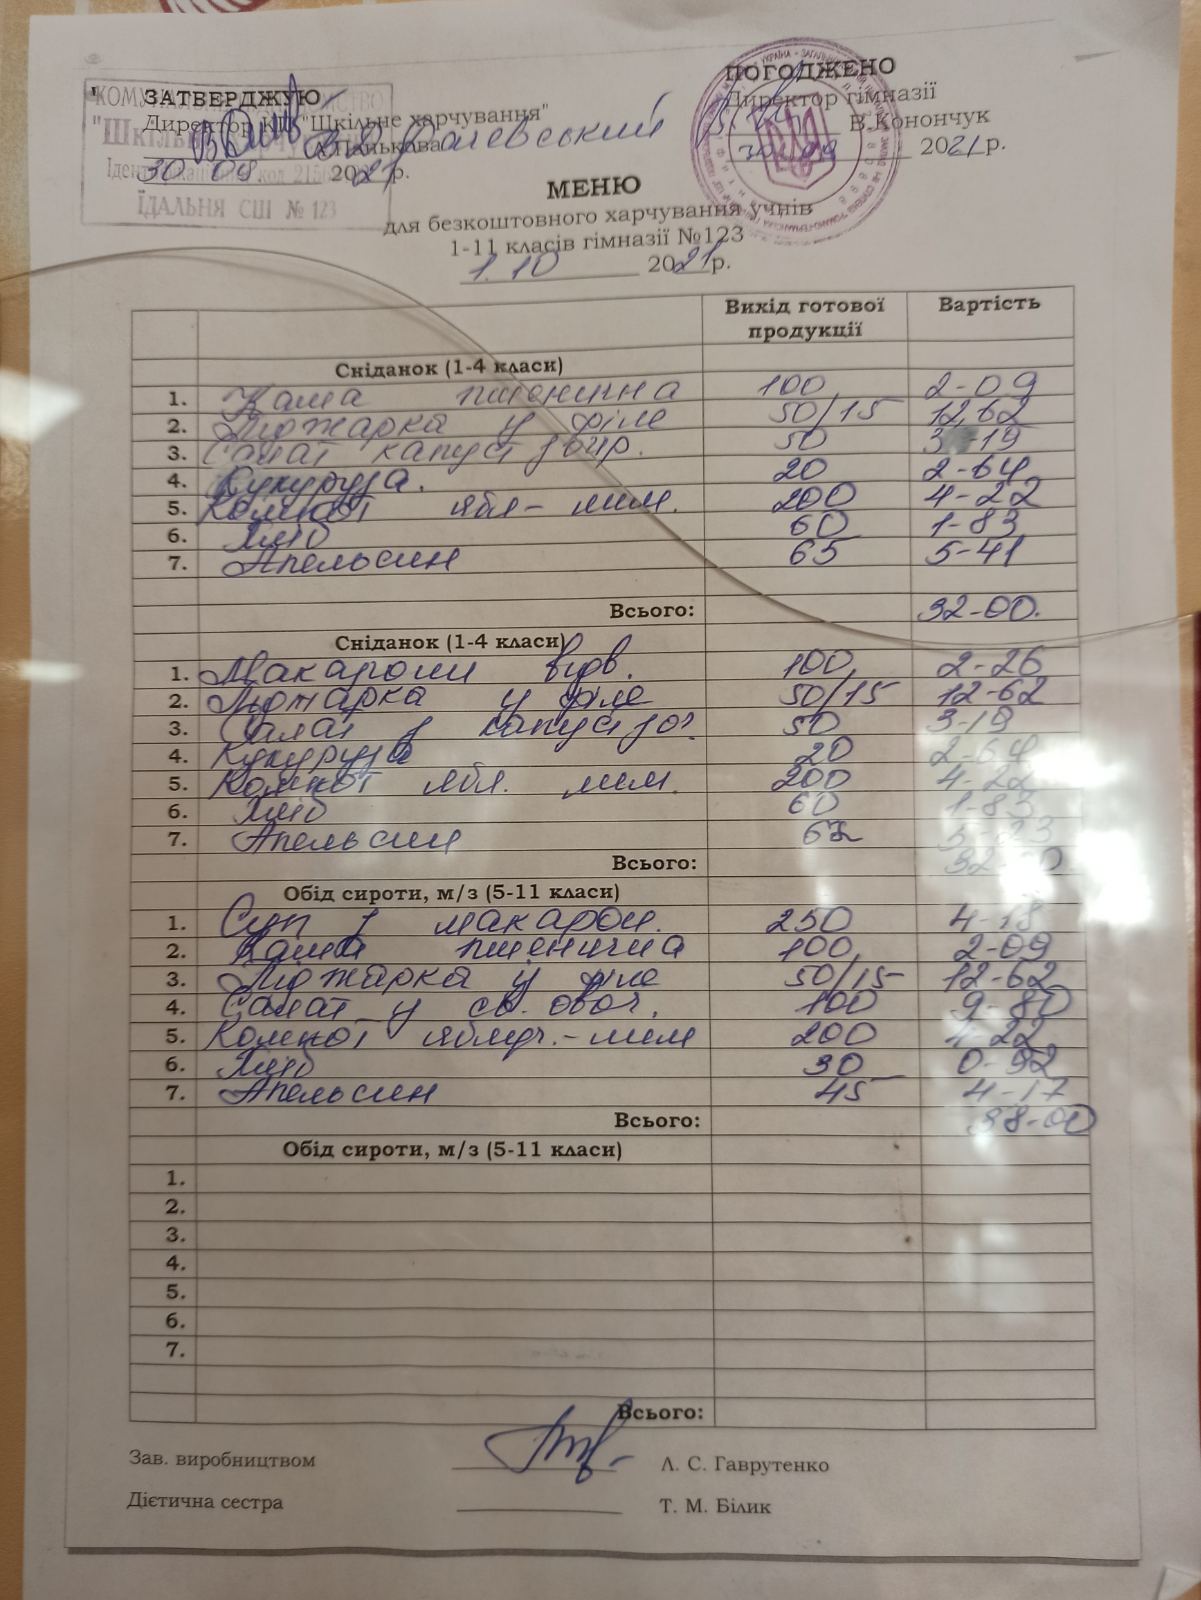 ЗАТВЕРДЖУЮ
Директор КП "Шкільне харчування"
А.Панькова
30 09 2021р.
ЇДАЛЬНЯ СШ № 123
ПОГОДЖЕНО
Директор гімназії
В.Конончук
30.09 2021р.
МЕНЮ
для безкоштовного харчування учнів
1-11 класів гімназії №123
1.10 2021р.
Вихід готової продукції Вартість
Сніданок (1-4 класи)
1. Каша пшенична 100 2-09
2. Піджарка у філе 50/15 12,62
3. Салат капуст 50 3-19
4. Кукурудза. 20 2-64
5. Компот ябл-лим. 200 4-22
6. Хліб 60 1-83
7. Апельсин 65 5-41
Всього: 32-00.
Сніданок (1-4 класи)
1. Макарони відв. 100 2-26
2. Піджарка у філе 50/15 12-62
3. Салат з капуст 50 3-19
4. Кукурудза 20 2-64
5. Компот ябл. лим. 200 4-22
6. Хліб 60 1-83
7. Апельсин
Всього: 32-00
Обід сироти, м/з (5-11 класи)
1. Суп з макарон. 250 4-18
2. Каша пшенична 100 2-09
3. Піджарка у філе 50/15 12-62
4. Салат у св. овоч. 100 9-80
5. Компот яблуч.-лим 200 4-22
6. Хліб 30 0-92
7. Апельсин 45 4-17
Всього: 38-00
Обід сироти, м/з (5-11 класи)
1.
2.
3.
4.
5.
6.
7.
Всього:
Зав. виробництвом Л. С. Гаврутенко
Дієтична сестра Т. М. Білик